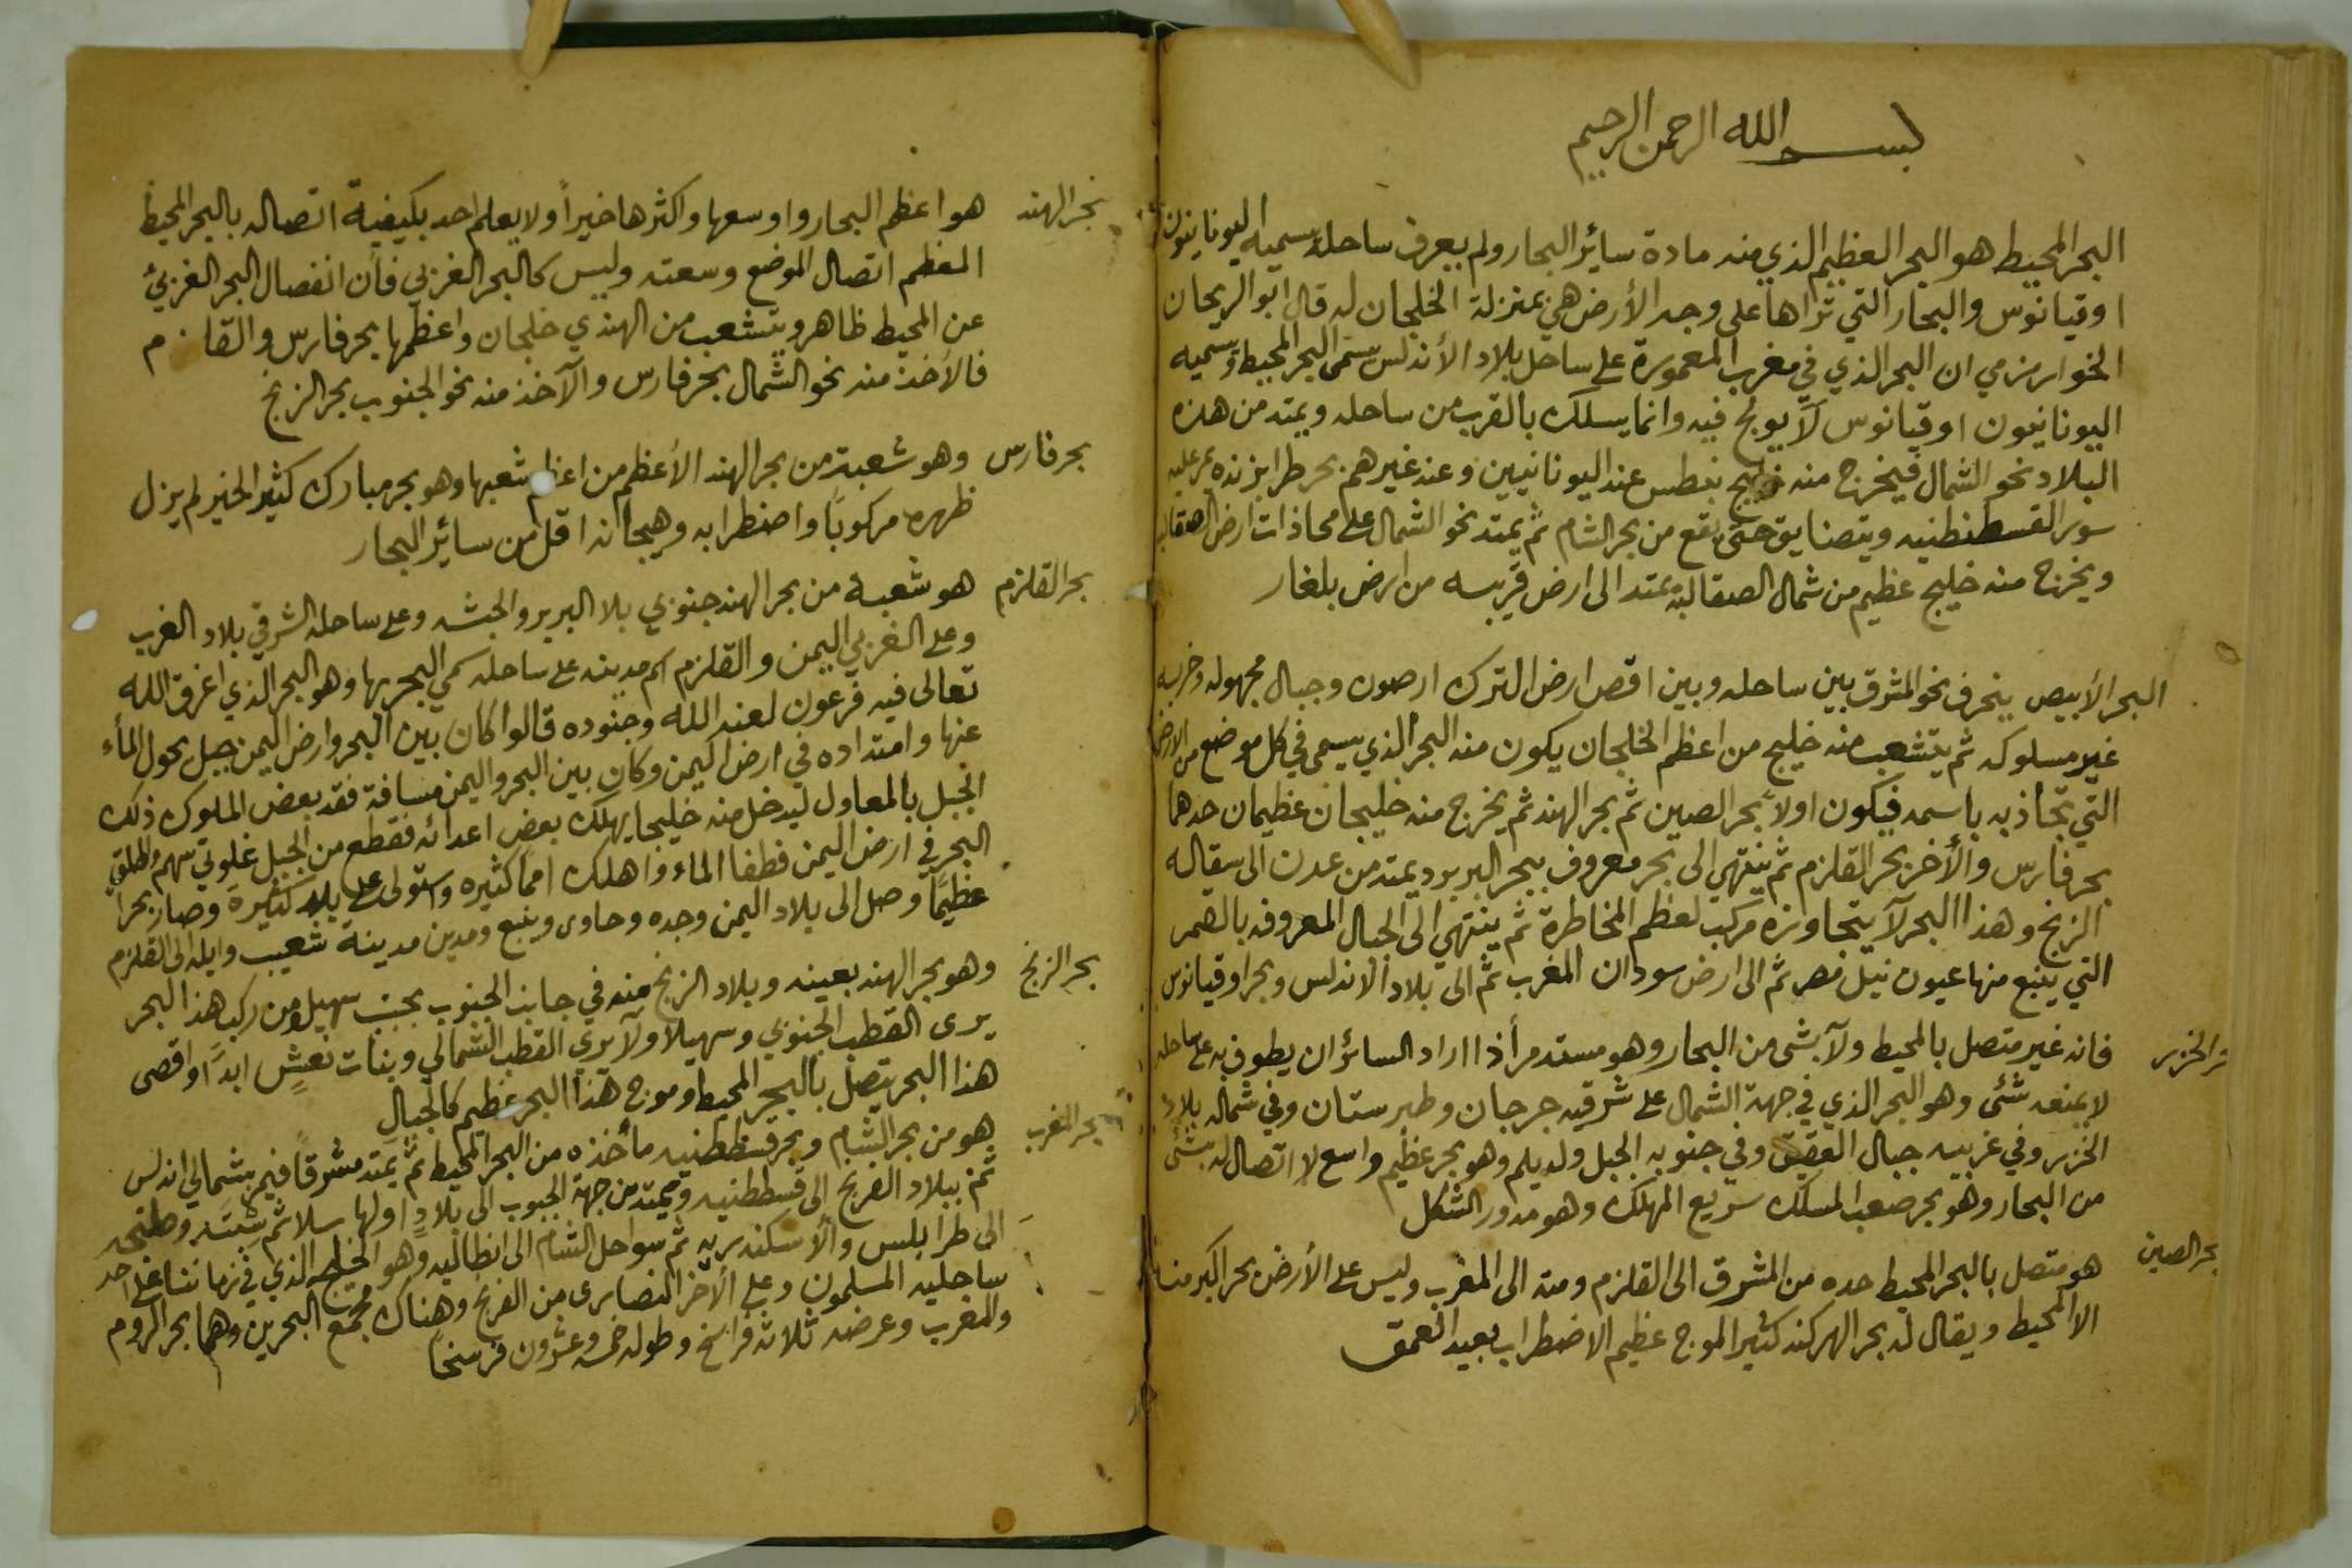 بسم الله الرحمن الرحيم
البحر المحيط هو البحر العظيم الذي منه مادة سائر البحار ولم يعرف ساحله يسميه اليونانيون
اوقيانوس والبحار التي تراها على وجه الأرض هي بمنزلة الخلجان له قال ابو الريحان
الخوارزمي ان البحر الذي في مغرب المعمورة على ساحل بلاد الأندلس سمى البحر المحيط وسميه
اليونانيون اوقيانوس لا يولج فيه وانما يسلك بالقرب من ساحله ويمتد من هذه
البلاد نحو الشمال فيخرج منه خليج بنطس عند اليونانيين وعند غيرهم بحر طرابزنده يمر عليه
سور القسطنطنيه ويتضايق حتى يقع من بحر الشام ثم يمتد نحو الشمال على محاذات ارض الصقالبه
ويخرج منه خليج عظيم من شمال الصقالبة يمتد الى ارض قريبه من ارض بلغار
البحر الأبيض ينحرف نحو المشرق بين ساحله وبين اقصى ارض الترك ارضون وجبال مجهوله وخربه
غير مسلوكه ثم يتشعب منه خليج من اعظم الخلجان يكون منه البحر الذي يسمى في كل موضع من الارض
التي تحاذيه باسمه فيكون اولاً بحر الصين ثم بحر الهند ثم يخرج منه خليجان عظيمان حدهما
بحر فارس والأخر بحر القلزم ثم ينتهي الى بحر معروف ببحر البربر ويمتد من عدن الى سقاله
الزنج وهذا البحر لا يتجاوزه مركب لعظم المخاطرة ثم ينتهي الى الجبال المعروفه بالقمر
التي ينبع منها عيون نيل مصر ثم الى ارض سودان المغرب ثم الى بلاد الاندلس وبحر اوقيانوس
بحر الخزر فانه غير متصل بالمحيط ولا بشى من البحار وهو مستدير أذا اراد السائر ان يطوف به على ساحله
لا يمنعه شئى وهو البحر الذي في جهة الشمال على شرقيه جرجان وطبرستان وفي شماله بلاد
الخزر وفي غربيه جبال القبق وفي جنوبه الجبل ولديلم وهو بحر عظيم واسع لا اتصال له بشئى
من البحار وهو بحر صعب المسلك سريع المهلك وهو مدور الشكل
بحر الصين هو متصل بالبحر المحيط حده من المشرق الى القلزم ومنه الى المغرب وليس على الأرض بحر اكبر منه
الا المحيط ويقال له بحر الهركند كثير الموج عظيم الاضطراب بعيد العمق
بحر الهند هو اعظم البحار واوسعها واكثرها خيراً ولا يعلم احد بكيفية اتصاله بالبحر المحيط
المعظم اتصال الموضع وسعته وليس كالبحر الغربي فأن انفصال البحر الغربي
عن المحيط ظاهر ويتشعب من الهندي خلجان واعظمها بحر فارس والقلزم
فالأخذ منه نحو الشمال بحر فارس والآخذ منه نحو الجنوب بحر الزنج
بحر فارس وهو شعبة من بحر الهند الأعظم من اعظم شعبها وهو بحر مبارك كثير الخير لم يزل
ظهره مركوباً واضطرابه وهيجانه اقل من سائر البحار
بحر القلزم هو شعبة من بحر الهند جنوبي بلا البربر والحبشه وعلى ساحله الشرقي بلاد العرب
وعلى الغربي اليمن والقلزم اسم مدينه على ساحله سمي البحر بها وهو البحر الذي اغرق الله
تعالى فيه فرعون لعنه الله وجنوده قالوا كان بين البحر وارض اليمن جبل يحول المأء
عنها وامتداده في ارض اليمن وكان بين البحر واليمن مسافة فقد بعض الملوك ذلك
الجبل بالمعاول ليدخل منه خليجا يهلك بعض اعدائه فقطع من الجبل غلوتي سهم واطلق
البحر في ارض اليمن فطفا الماء واهلك امماً كثيره واستولى على بلاد كثيرة وصار بحراً
عظيمًا وصل الى بلاد اليمن وجده وحاوى وينبع ومدين مدينة شعيب وايله الى القلزم
بحر الزنج وهو بحر الهند بعينه وبلاد الزنج منه في جانب الجنوب تحت سهيل ومن ركب هذا البحر
يرى القطب الجنوبي وسهيلا ولا يري القطب الشمالي وبنات نعش ابداً واقصى
هذا البحر يتصل بالبحر المحيط وموج هذا البحر عظيم كالجبال
بحر المغرب هو من بحر الشام وبحر قسططنيه مأخذه من البحر المحيط ثم يمتد مشرقاً فيمر بشمالي اندلس
ثم ببلاد الفرنج الى قسططنيه ويمتد من جهة الجنوب الى بلاد اولها سلا ثم سبته وطنجه
الى طرابلس والأسكندريه ثم سواحل الشام الى انطاليه وهو الخليج الذي في زماننا على احد
ساحليه المسلمون وعلى الأخر النصارى من الفرنج وهناك مجمع البحرين وهما بحر الروم
والمغرب وعرضه ثلاثه فراسخ وطوله خمسه وعشرون فرسخاً